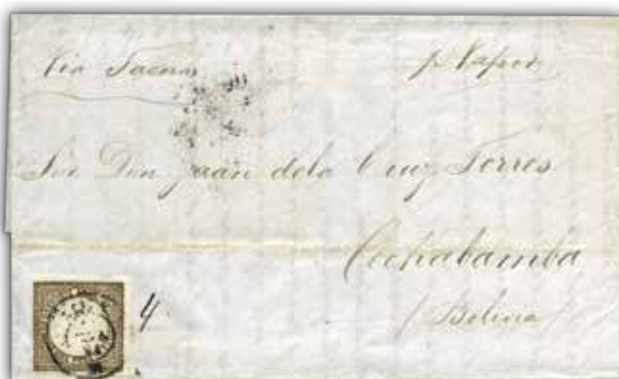 Via Tacna
pr Vapor
Sor Don Juan dela Cruz Torres
Cochabamba
/ Bolivia /
4